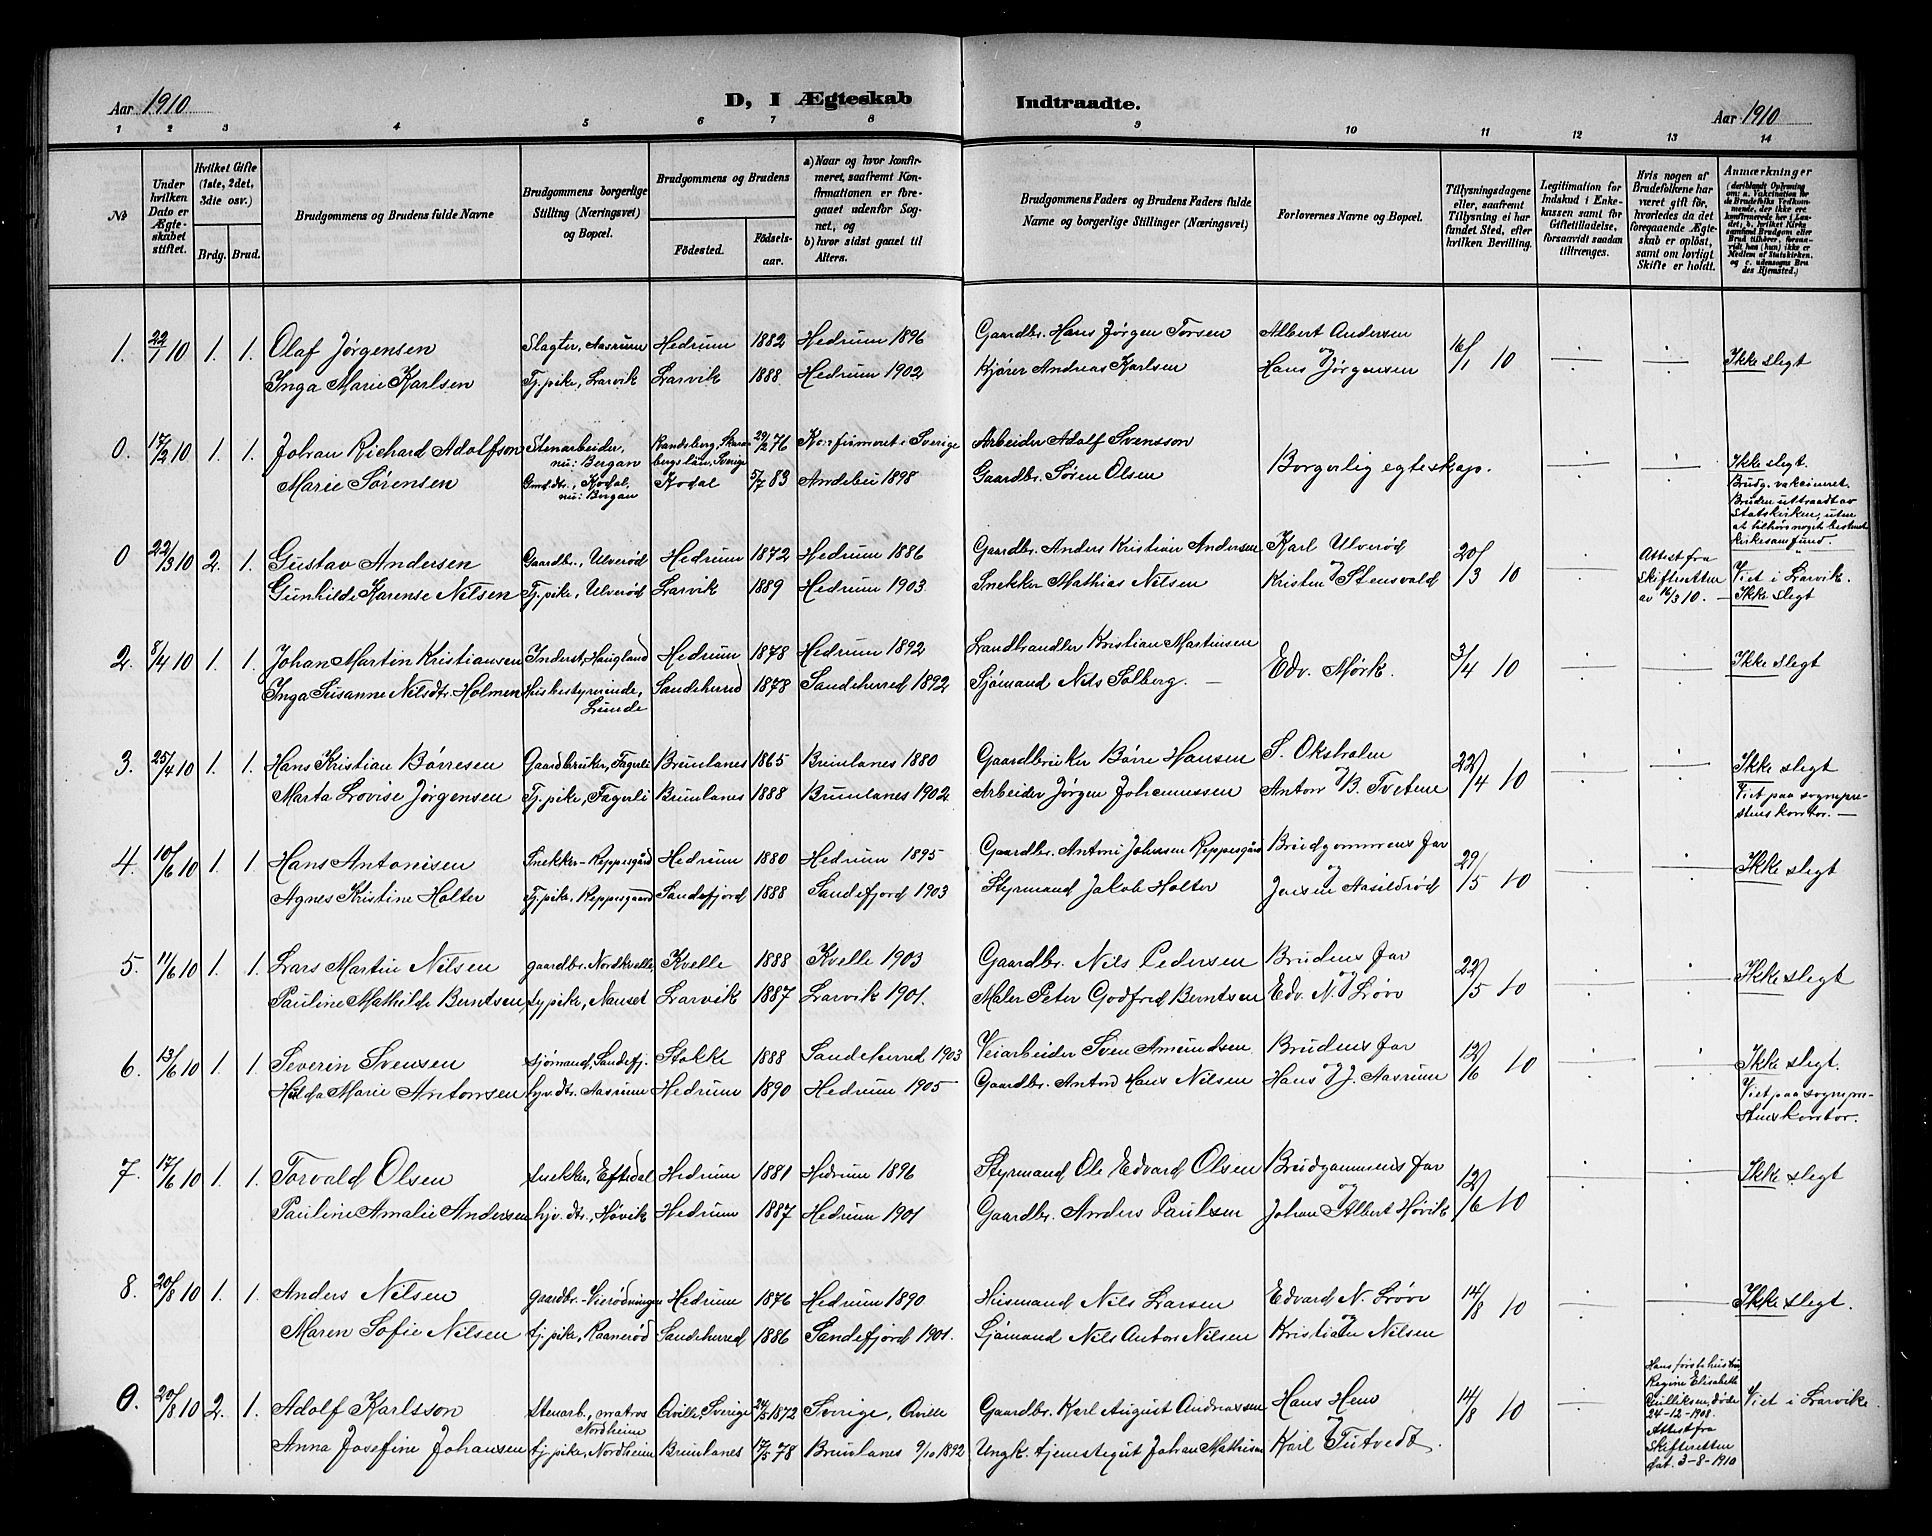 Aar 1910
D, I Ægteskab
Indtraadte.
Aar 1910
1 2 3 4 5 6 7 8 9 10 11 12 13 14
No
Under hvilken Dato er Ægteskabet stiftet.
Hvilket Gifte (1ste, 2det, 3die osv.)
Brdg. Brud.
Brudgommens og Brudens fulde Navne
Brudgommens borgerlige Stilling (Næringsvei) og Bopæl.
Brudgommens og Brudens
Fødested.
Fødselsaar.
a) Naar og hvor konfirmeret, saafremt Konfirmationen er foregaaet udenfor Sognet, og
b) hvor sidst gaaet til Alters.
Brudgommens Faders og Brudens Faders fulde Navne og borgerlige Stillinger (Næringsvei)
Forlovernes Navne og Bopæl.
Tillysningsdagene eller, saafremt Tillysning ei har fundet Sted, efter hvilken Bevilling.
Legitimation for Indskud i Enkekassen samt for Giftetilladelse, forsaavidt saadan tiltrænges.
Hvis nogen af Brudefolkene har været gift før, hvorledes da det foregaaende Ægteskab er opløst, samt om lovligt Skifte er holdt.
Anmærkninger
(deriblandt Oplysning om: a. Vaccination for de Brudefolks Vedkommende, der ikke ere konfirmerede her i Landet, b. hvilket Kirkesamfund Brudgom eller Brud tilhører, forsaavidt han (hun) ikke er Medlem af Statskirken. og c. udensogns Brudes Hjemsted.)
1. 22/1 10 1. 1. Olaf Jørgensen Slagter, Aasrum Hedrum 1882 Hedrum 1896 Gaardbr. Hans Jørgen Torsen Albert Andersen 16/1 10 Ikke slegt
Inga Marie Karlsen Tj.pike, Larvik Larvik 1888 Hedrum 1902 Kjører Andreas Karlsen Hans Jørgensen
0. 17/2 10 1. 1. Johan Richard Adolfson Stenarbeider, nu: Bergan Randsberg, Skarabergslän, Sverige 29/2 76 Konfirmeret i Sverige Arbeider Adolf Svensson Borgerlig egteskap. Ikke slegt.
Marie Sørensen Gmd.dtr., Kodal, nu: Bergan Kodal 5/7 83 Andebu 1898 Gaardbr. Søren Olsen Brudg. vakcineret. Bruden uttraadt av Statskirken, uten at tilhøre noget bestemt kirkesamfund.
0 22/3 10 2. 1. Gustav Andersen Gaardbr., Ulverød Hedrum 1872 Hedrum 1886 Gaardbr. Anders Kristian Andersen Karl Ulverød 20/3 10 Attest fra skifteretten av 16/3 10. Viet i Larvik.
Gunhilde Karense Nilsen Tj.pike, Ulverød Larvik 1889 Hedrum 1903. Snekker Mathias Nilsen Kristen Stensvald Ikke slegt
2. 8/4 10 1. 1. Johan Martin Kristiansen Inderst, Haugland Hedrum 1878 Hedrum 1892 Landhandler Kristian Martinsen Edv. Mørk. 3/4 10 Ikke slegt
Inga Susanne Nilsdtr. Holmen Husbestyrerinde, Lunde Sandeherred 1878 Sandeherred 1892 Sjømand Nils Solberg.
3. 25/4 10 1. 1. Hans Kristian Børresen Gaardbruker, Fagerli Brunlanes 1865 Brunlanes 1880 Gaardbruker Børre Hansen S. Oksholm 22/4 10 Ikke slegt
Marta Lovise Jørgensen Tj.pike, Fagerli Brunlanes 1888 Brunlanes 1902 Arbeider Jørgen Johannessen Anton B. Tvetene Viet paa sogneprestens kontor.
4. 10/6 10 1. 1 Hans Antonisen Snekker - Reppesgård Hedrum 1880 Hedrum 1895 Gaardbr. Antoni Johnsen Reppesgård Brudgommens far 29/5 10 Ikke slegt
Agnes Kristine Holter Tj.pike, Reppesgaard Sandefjord 1888 Sandefjord 1903 Styrmand Jakob Holter Jansen Aasildrød
5. 11/6 10 1. 1. Lars Martin Nilsen gaardbr. Nordkvelle Kvelle 1888 Kvelle 1903 Gaardbr. Nils Pedersen Brudens far 22/5 10 Ikke slegt
Pauline Mathilde Berntsen tj.pike, Nanset Larvik 1887 Larvik 1901. Maler Peter Godfred Berntsen Edv. N. Løve
6. 13/6 10 1. 1. Severin Svensen sjømand, Sandefj. Stokke 1888 Sandeherred 1903 Veiarbeider Sven Amundsen Brudens far 12/6 10 Ikke slegt.
Hilda Marie Antonsen hjv. dtr. Aasrum Hedrum 1890 Hedrum 1905 Gaardbr. Anton Hans Nilsen Hans J. Aasrum Viet paa sogneprestens kontor.
7. 17/6 10 1. 1. Torvald Olsen snekker, Eftedal Hedrum 1881 Hedrum 1896 Styrmand Ole Edvard Olsen Brudgommens far 12/6 10 Ikke slegt
Pauline Amalie Andersen hjv. dtr., Høvik Hedrum 1887 Hedrum 1901 Gaardbr. Anders Paulsen Johan Albert Høvik
8. 20/8 10 1. 1. Anders Nilsen gaardbr. - Vierødningen Hedrum 1876 Hedrum 1890 Husmand Nils Larsen Edvard N. Løve 14/8 10 Ikke slegt.
Maren Sofie Nilsen tj.pike, Raanerød Sandeherred 1886 Sandefjord 1901. Sjømand Nils Anton Nilsen Kristian Nilsen
0. 20/8 10 2. 1. Adolf Karlsson stenarb., matros Nordheim Qville, Sverige 24/5 1872 Sverige, Qville Gaardbr. Karl August Andreassen Hans Hem 14/8 10 Hans første hustru Regine Elisabeth Gulliksen, døde 24-12-1908. Attest fra Skifteretten dat. 3-8-1910 Viet i Larvik
Anna Josefine Johansen tj.pike, Nordheim Brunlanes 17/5 78 Brunlanes 9/10 1892 Ungk. tjenestegut Johan Mathisen Karl Tutvedt.